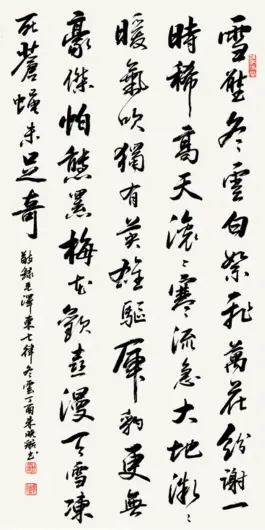 雪壓冬雲白絮飛萬花紛謝一
時稀高天滾〻寒流急大地微〻
暖氣吹獨有英雄驅虎豹更無
豪傑怕熊羆梅花歡喜漫天雪凍
死蒼蠅未足奇
敬錄毛澤東七律冬雲丁酉朱書